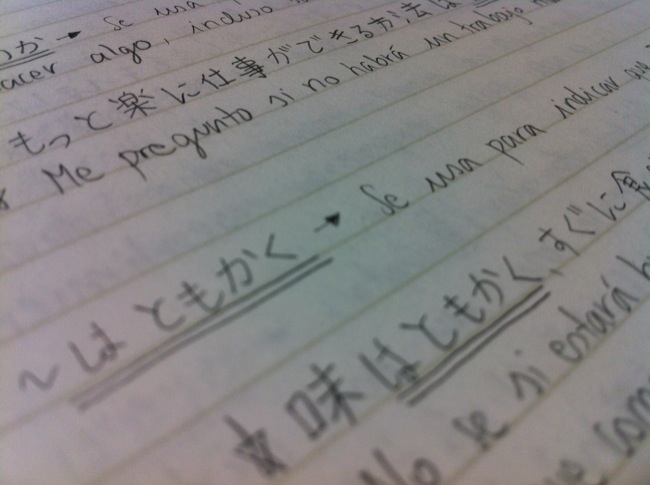 → Se usa
acer algo, incluso
もっと楽に仕事ができる方法は
* Me pregunto si no habrá un trabajo
～はともかく → Se usa para indicar que
☆ 味はともかく、すぐに食
No se si estará